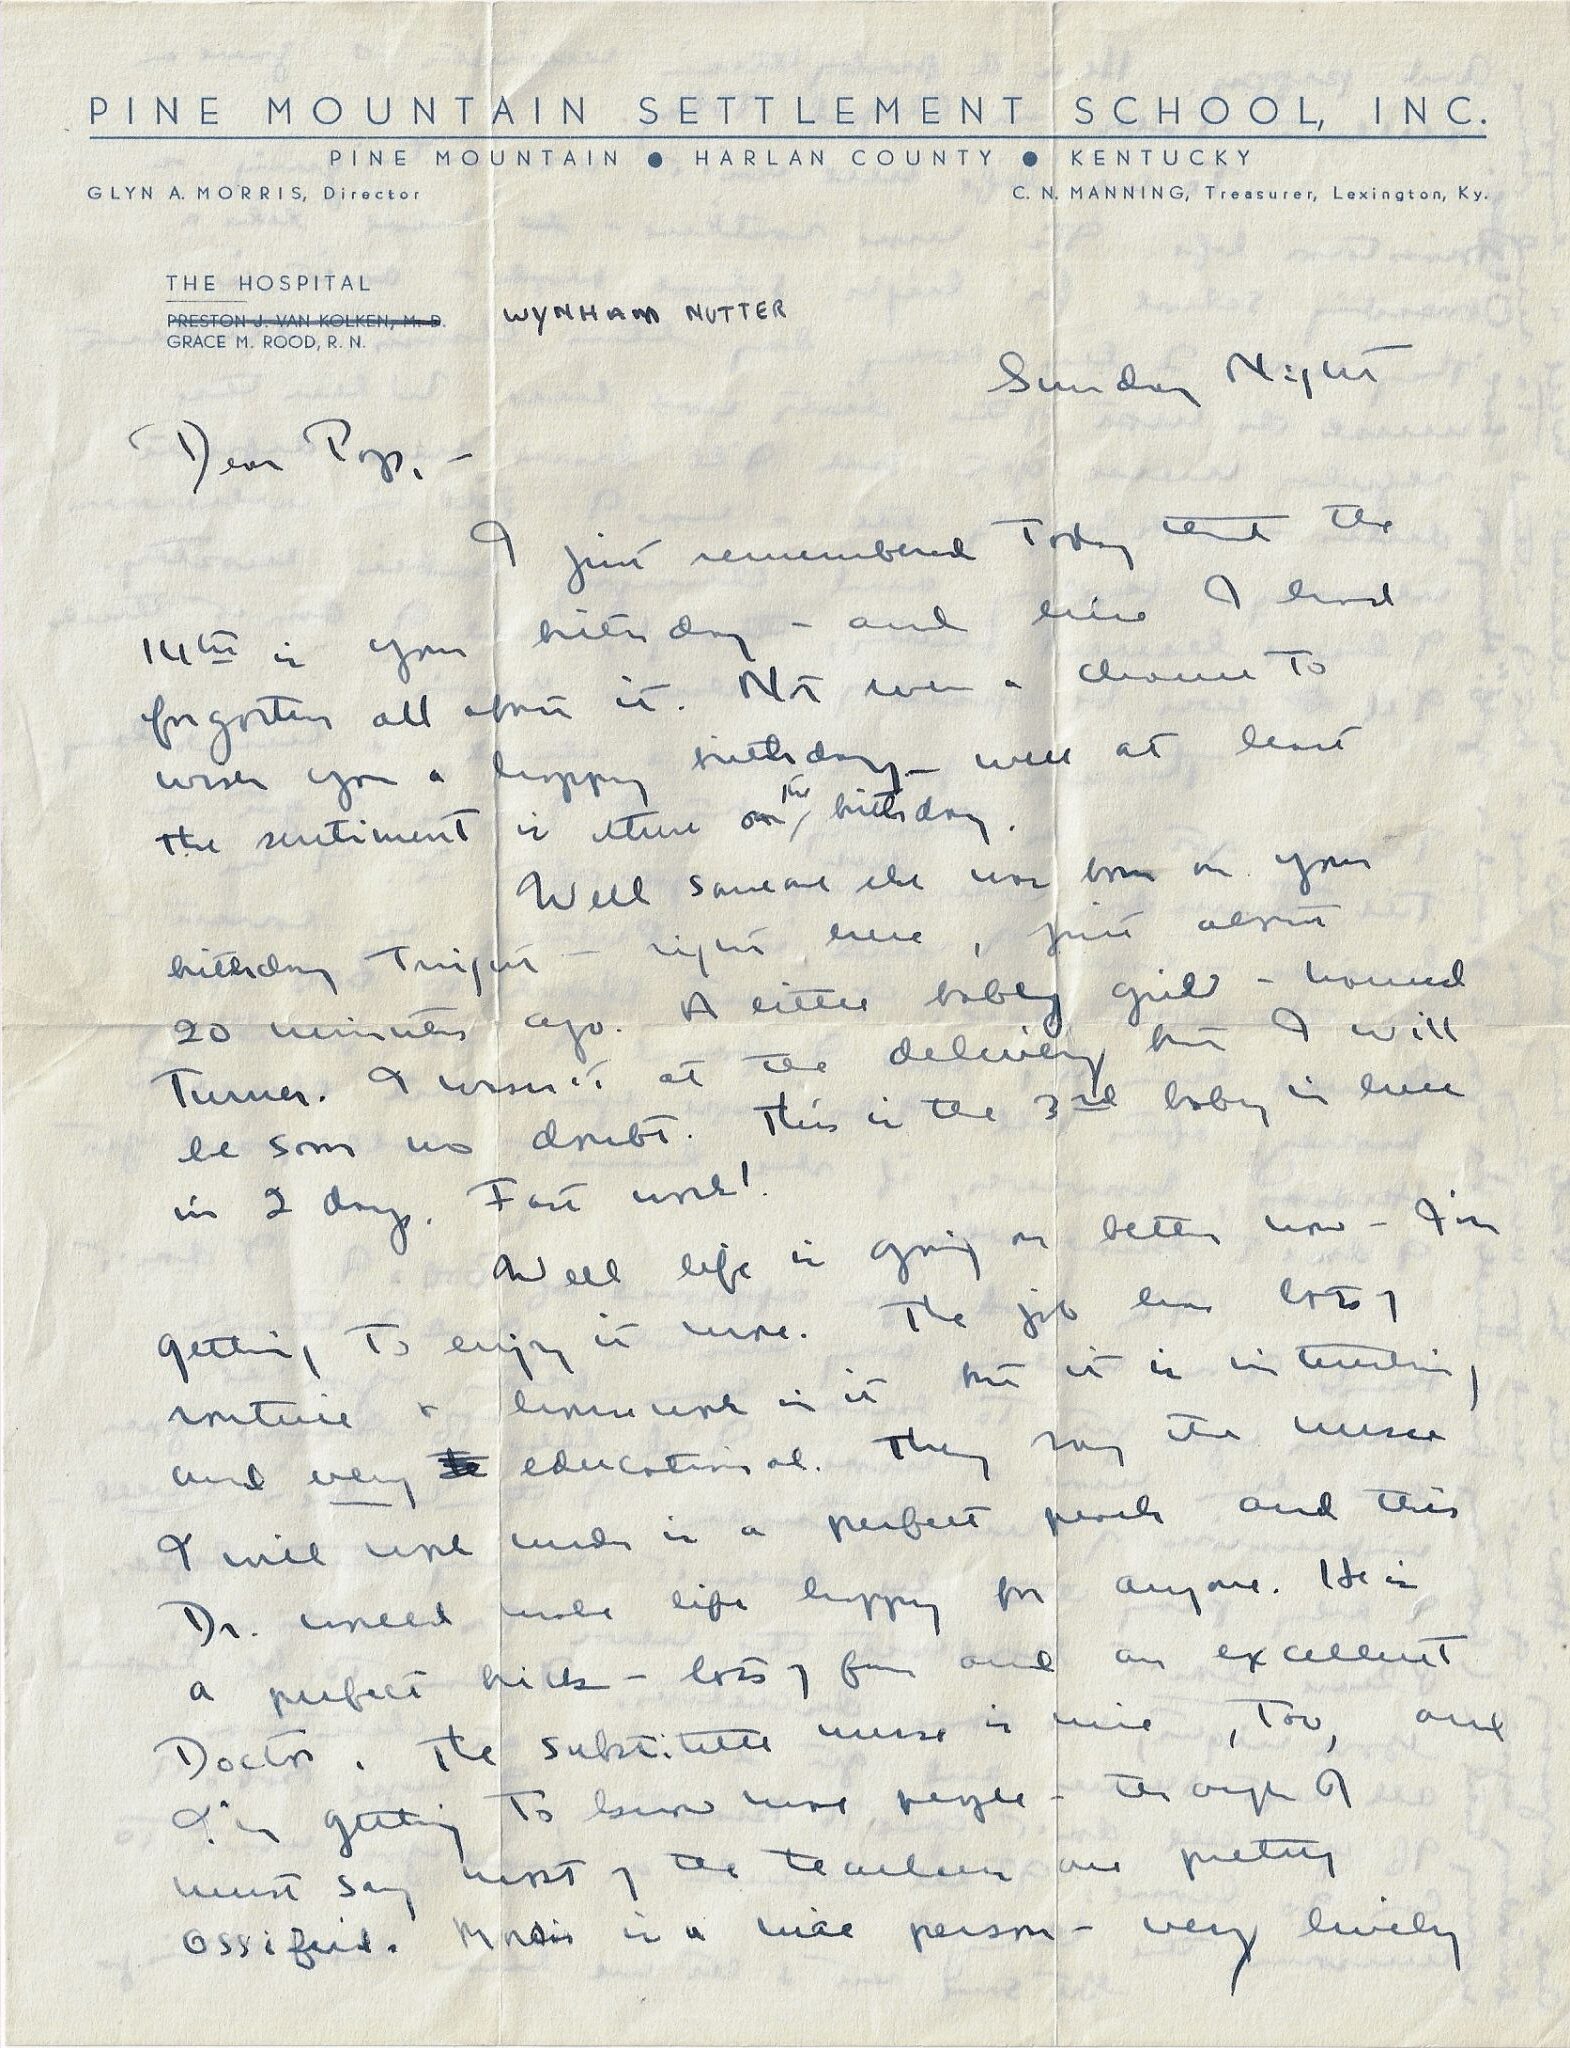 PINE MOUNTAIN SETTLEMENT SCHOOL, INC.
PINE MOUNTAIN ● HARLAN COUNTY ● KENTUCKY
GLYN A. MORRIS, Director C. N. MANNING, Treasurer, Lexington, Ky.
THE HOSPITAL
PRESTON J. VAN KOLKEN, M. D. WYNHAM NUTTER
GRACE M. ROOD, R. N.
Sunday Night
Dear Pop, -
I just remembered today that the
14th is your birthday - and here I had
forgotten all about it. Not even a chance to
wish you a happy birthday - well at least
the sentiment is there on the birthday.
Well someone else was born on your
birthday tonight - right here, just about
20 minutes ago. A little baby girl - named
Turner. I wasn't at the delivery but I will
be soon no doubt. This is the 3rd baby in here
in 2 days. Fast work!
Well life is going on better now - I'm
getting to enjoy it more. The job has lots of
routine & housework in it but it is interesting
and very educational. They say the nurse
I will work under is a perfect peach and this
Dr. would make life happy for anyone. He is
a perfect brick - lots of fun and an excellent
Doctor. The substitute nurse is nice, too, and
I'm getting to know more people - though I
must say most of the teachers are pretty
ossified. Morris is a nice person - very lively